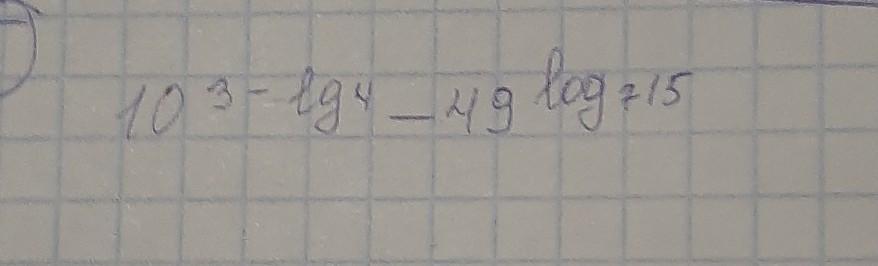 10^{3 - lg 4} - 49^{log_7 15}